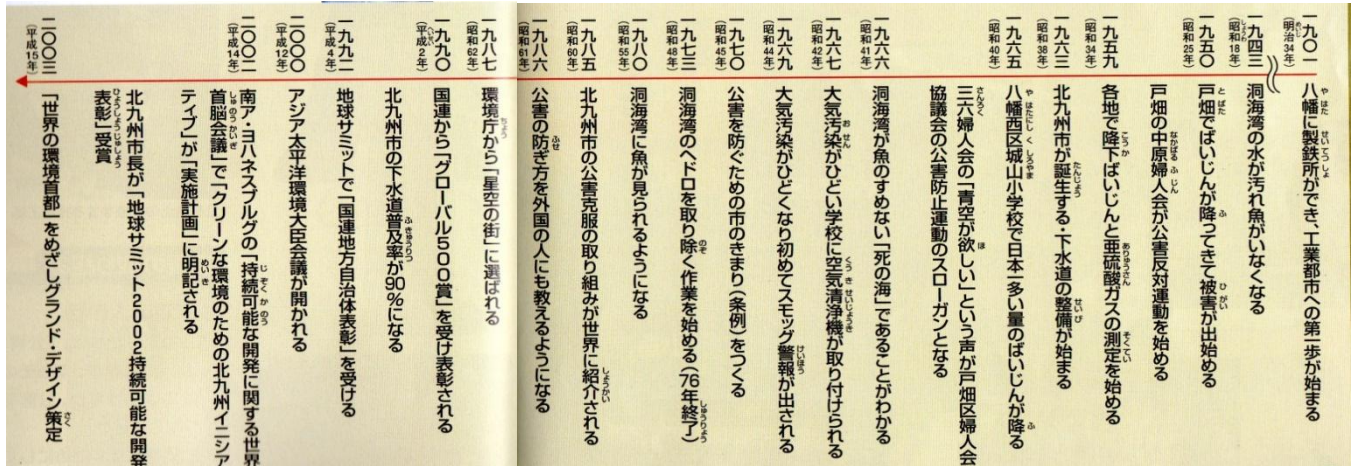 一九〇一
(明治34年)
八幡に製鉄所ができ、工業都市への第一歩が始まる
一九四三
(昭和18年)
洞海湾の水が汚れ魚がいなくなる
一九五〇
(昭和25年)
戸畑でばいじんが降ってきて被害が出始める
戸畑の中原婦人会が公害反対運動を始める
一九五九
(昭和34年)
各地で降下ばいじんと亜硫酸ガスの測定を始める
一九六三
(昭和38年)
北九州市が誕生する・下水道の整備が始まる
一九六五
(昭和40年)
八幡西区城山小学校で日本一多い量のばいじんが降る
三六婦人会の「青空が欲しい」という声が戸畑区婦人会
協議会の公害防止運動のスローガンとなる
一九六六
(昭和41年)
洞海湾が魚のすめない「死の海」であることがわかる
一九六七
(昭和42年)
大気汚染がひどい学校に空気清浄機が取り付けられる
一九六九
(昭和44年)
大気汚染がひどくなり初めてスモッグ警報が出される
一九七〇
(昭和45年)
公害を防ぐための市のきまり(条例)をつくる
一九七三
(昭和48年)
洞海湾のヘドロを取り除く作業を始める(76年終了)
一九八〇
(昭和55年)
洞海湾に魚が見られるようになる
一九八五
(昭和60年)
北九州市の公害克服の取り組みが世界に紹介される
一九八六
(昭和61年)
公害の防ぎ方を外国の人にも教えるようになる
一九八七
(昭和62年)
環境庁から「星空の街」に選ばれる
一九九〇
(平成2年)
国連から「グローバル500賞」を受け表彰される
北九州市の下水道普及率が90%になる
一九九二
(平成4年)
地球サミットで「国連地方自治体表彰」を受ける
二〇〇〇
(平成12年)
アジア太平洋環境大臣会議が開かれる
二〇〇二
(平成14年)
南ア・ヨハネスブルグの「持続可能な開発に関する世界
首脳会議」で「クリーンな環境のための北九州イニシア
ティブ」が「実施計画」に明記される
北九州市長が「地球サミット2002持続可能な開発
表彰」受賞
二〇〇三
(平成15年)
「世界の環境首都」をめざしグランド・デザイン策定